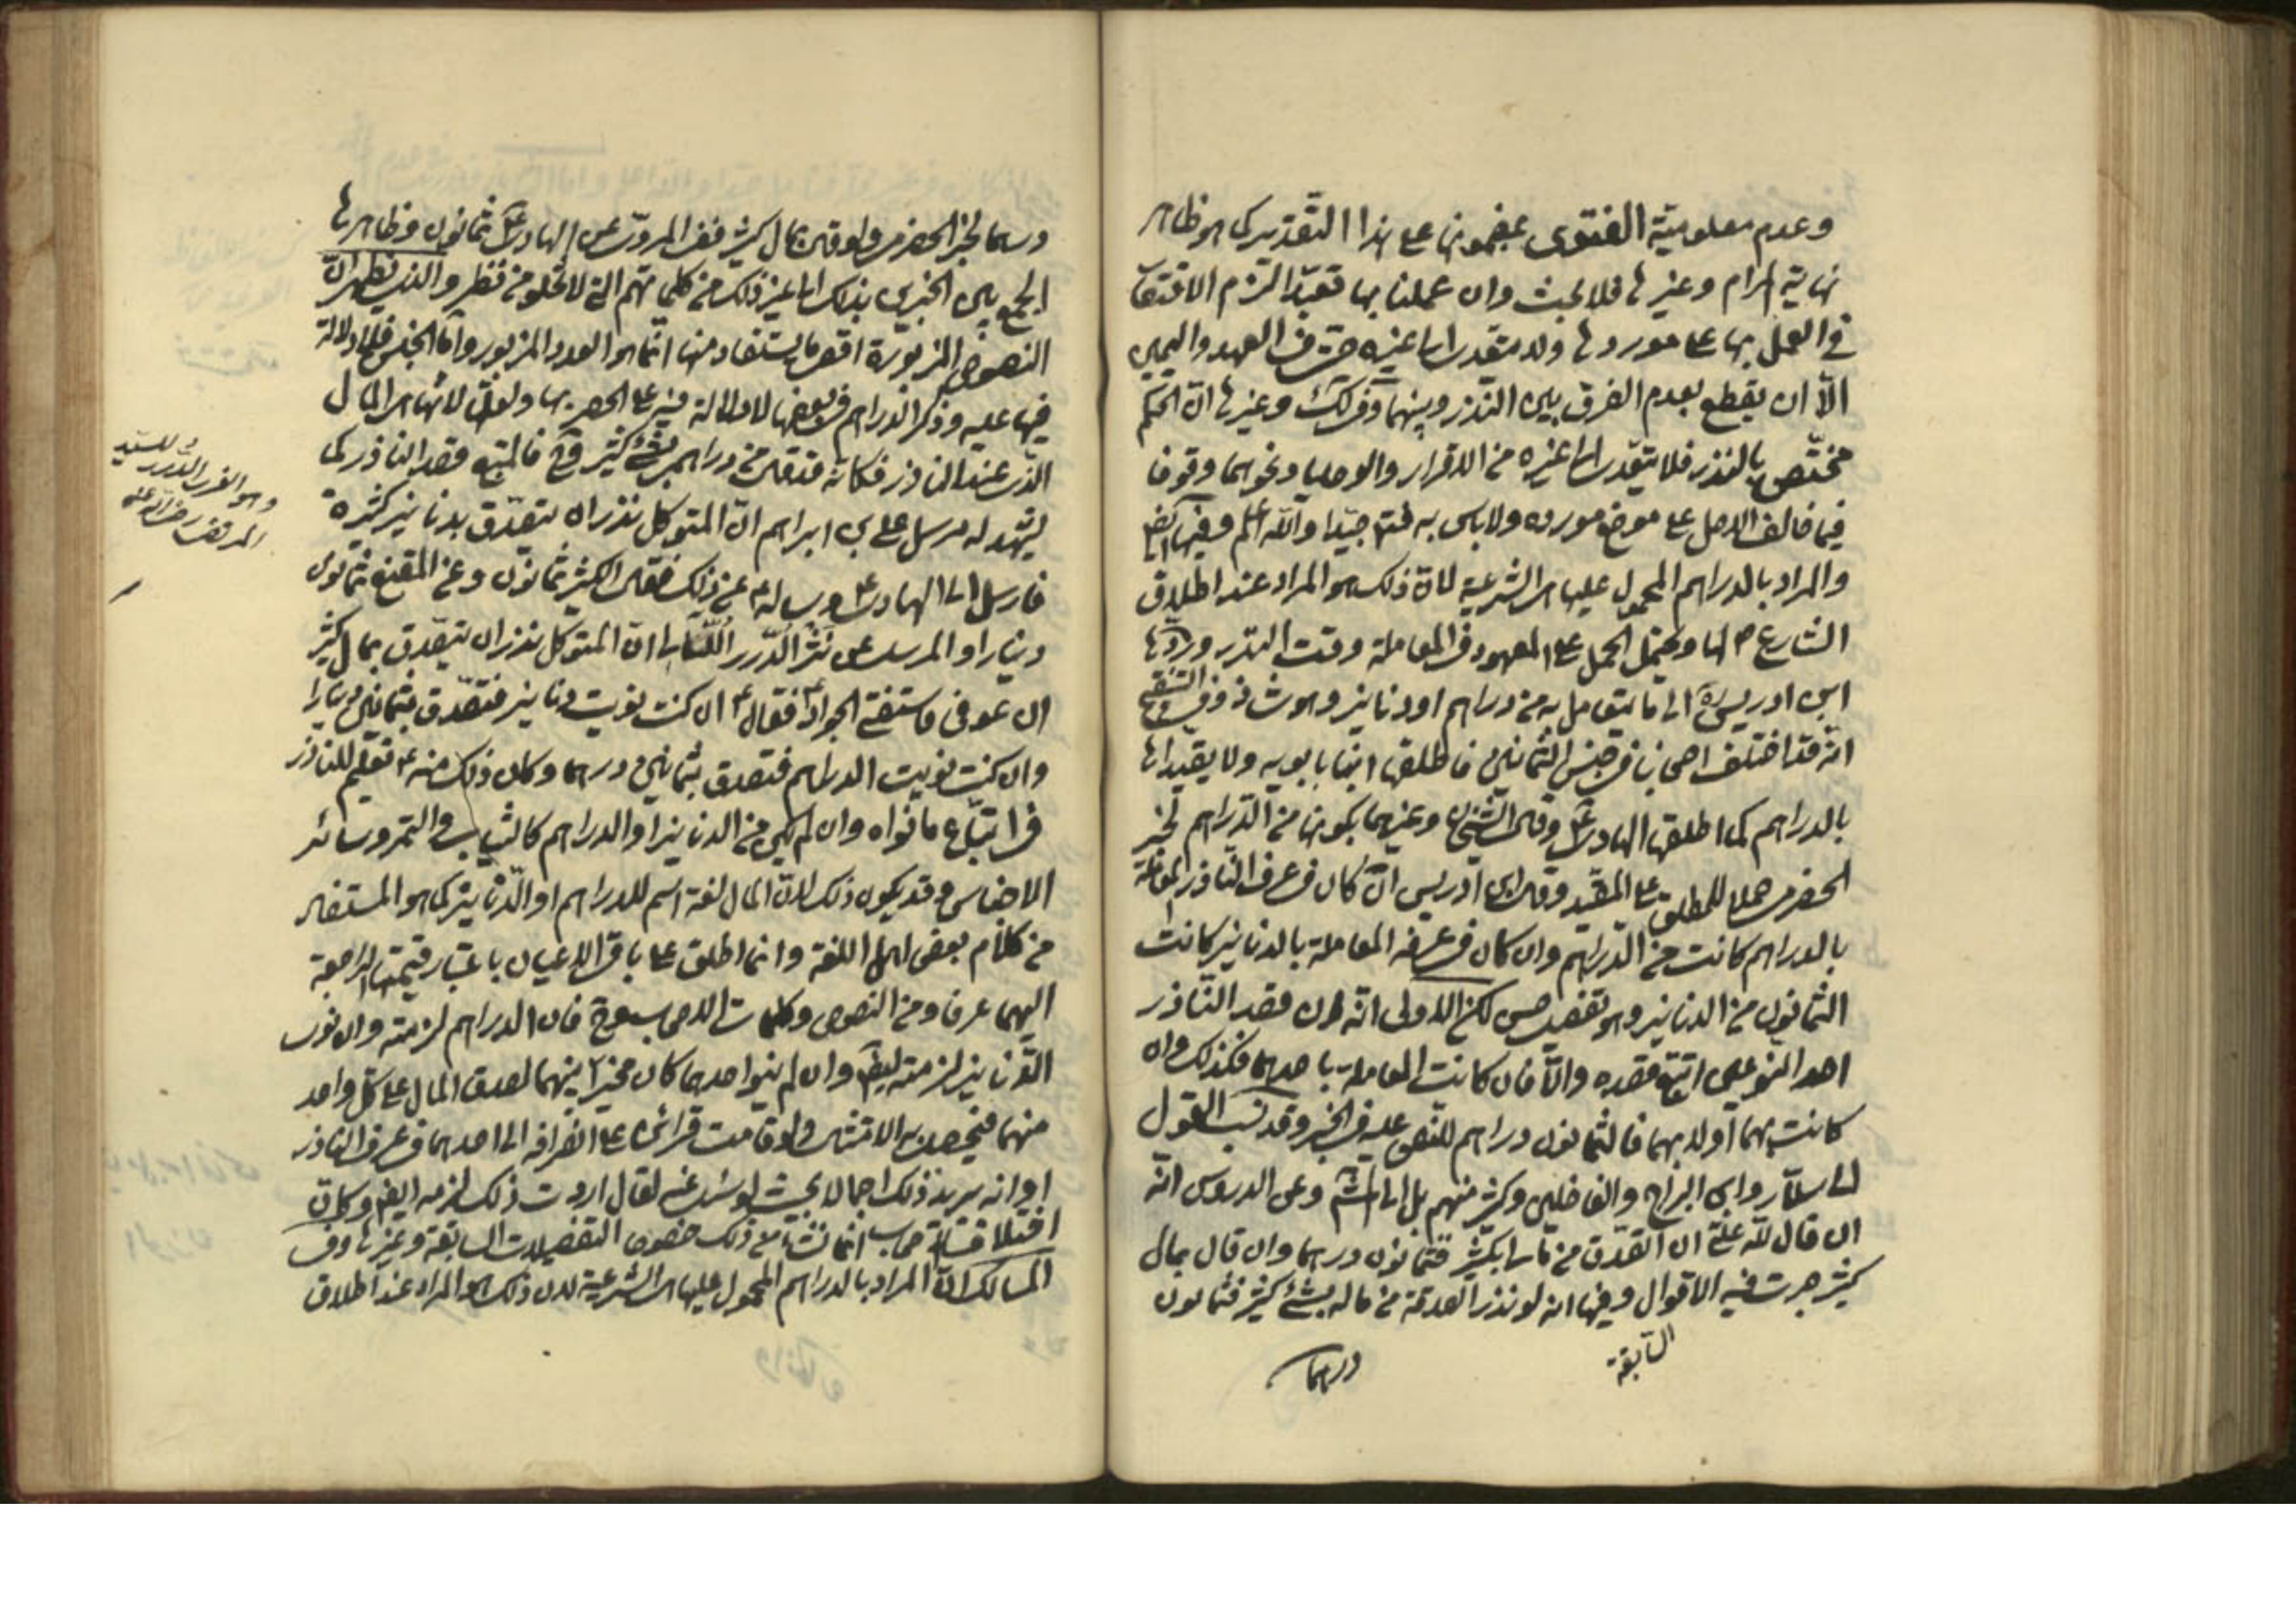 وعدم معلومية الفتوى بمضمونها على هذا التقدير كما هو ظاهر
نهاية المرام وغيرها فلا بحث وان عملنا بها تعبدا لزم الاقتصار
في العمل بها على موردها ولا يتعدى الى غيره حتى في العهد واليمين
الا ان يقطع بعدم الفرق بين النذر وبينهما وفي لك وغيرها ان الحكم
مختص بالنذر فلا يتعدى الى غيره من الاقرار والوصايا ونحوهما وقوفا
فيما خالف الاصل على موضع مورده ولا باس به فتتم جيدا والله اعلم وفيها ايضا
والمراد بالدراهم المحمول عليها هى الشرعية لان ذلك هو المراد عند اطلاق
الشارع لها ويحتمل الحمل على المعهود في المعاملة وقت النذر وردها
ابن ادريس ره الى ما يتعامل به من دراهم او دنانير وهو شاذ وفي التنقيح
انه قد اختلف اصحابنا في جنس الثمانين فاطلقها ابنا بابويه ولا يقيداها
بالدراهم كما اطلقها الهادى ع وقال الشيخان وغيرهما بكونها من الدراهم لخبر
الحضرمى حملا للمطلق على المقيد وقال ابن ادريس ان كان في عرف الناذر المعاملة
بالدراهم كانت من الدراهم وان كان في عرفه المعاملة بالدنانير كانت
الثمانون من الدنانير وهو تفصيل حسن لكن الاولى انه ان قصد الناذر
احد النوعين اتبع قصده والا فان كانت المعاملة باحدهما فكذلك وان
كانت بهما او لا بهما فالثمانون دراهم للنص عليه في الخبر وقد نسب القول
الى سلار وابن البراج والفاضلين وكثير منهم بل الى وعن الدروس انه
ان قال لله على ان اتصدق من مالى بكثير فثمانون درهما وان قال بمال
كثير جرت فيه الاقوال وفيها انه لو نذر الصدقة من ماله بشئ كثير فثمانون
السابقة
درهما
درهما لخبر الحضرمى ولو قال بمال كثير ففى المروى عن الهادى ع ثمانون وظاهرها
الجمع بين الخبرين بذلك الى غير ذلك من كلماتهم التى لا تخلو من نظر والذى يظهر ان
النصوص المزبورة اقصى ما يستفاد منها انما هو العدد المزبور واما الجنس فلا دلالة
فيها عليه وذكر الدراهم في بعضها لا دلالة فيه على الحصر بها ولعله لانها هى المال
الذى عند الناذر فكانه قد قال من دراهمى بشئ كثير وح فالمتبع قصد الناذر كما
يشهد له مرسل على بن ابراهيم ان المتوكل نذر ان يتصدق بدنانير كثيرة
فارسل الى الهادى ع وساله عن ذلك فقال الكثير ثمانون وعن المقنع ثمانون
دينارا والمرسل عن نثر الدرر اللئالى ان المتوكل نذر ان يتصدق بمال كثير
ان عوفى فاستفتى الجواد ع فقال ع ان كنت نويت دنانير فتصدق بثمانين دينارا
وان كنت نويت الدراهم فتصدق بثمانين درهما وكان ذلك منه ع تعليم للناذر
في اتباع ما نواه وان لم يكن من الدنانير او الدراهم كالثياب والتمر وسائر
الاجناس وقد يكون ذلك لان المال لغة اسم للدراهم او الدنانير كما هو المستفاد
من كلام بعض اهل اللغة وانما اطلق على باقى الاعيان باعتبار قيمتها الراجعة
اليهما عرفا ومن النصوص وكلمات الاصحاب وح فان الدراهم لزمته وان نوى
الدنانير لزمته ايضا وان لم ينو احدهما كان مخيرا بينهما لصدق المال على كل واحد
منهما فيحصل به الامتثال ولو قامت قرائن على انصرافه الى احدهما في عرف الناذر
او انه يريد ذلك اجمالا بحيث لو سئل عنه لقال اردت ذلك لزمه ايضا وكان
اختلاف الاصحاب انما نشأ من ذلك خصوص التفصيلات السابقة وغيرها وفى
المسالك ان المراد بالدراهم المحمول عليها هى الشرعية لان ذلك هو المراد عند اطلاق
وهو الغرر والدرر للسيد
المرتضى رضى الله عنه